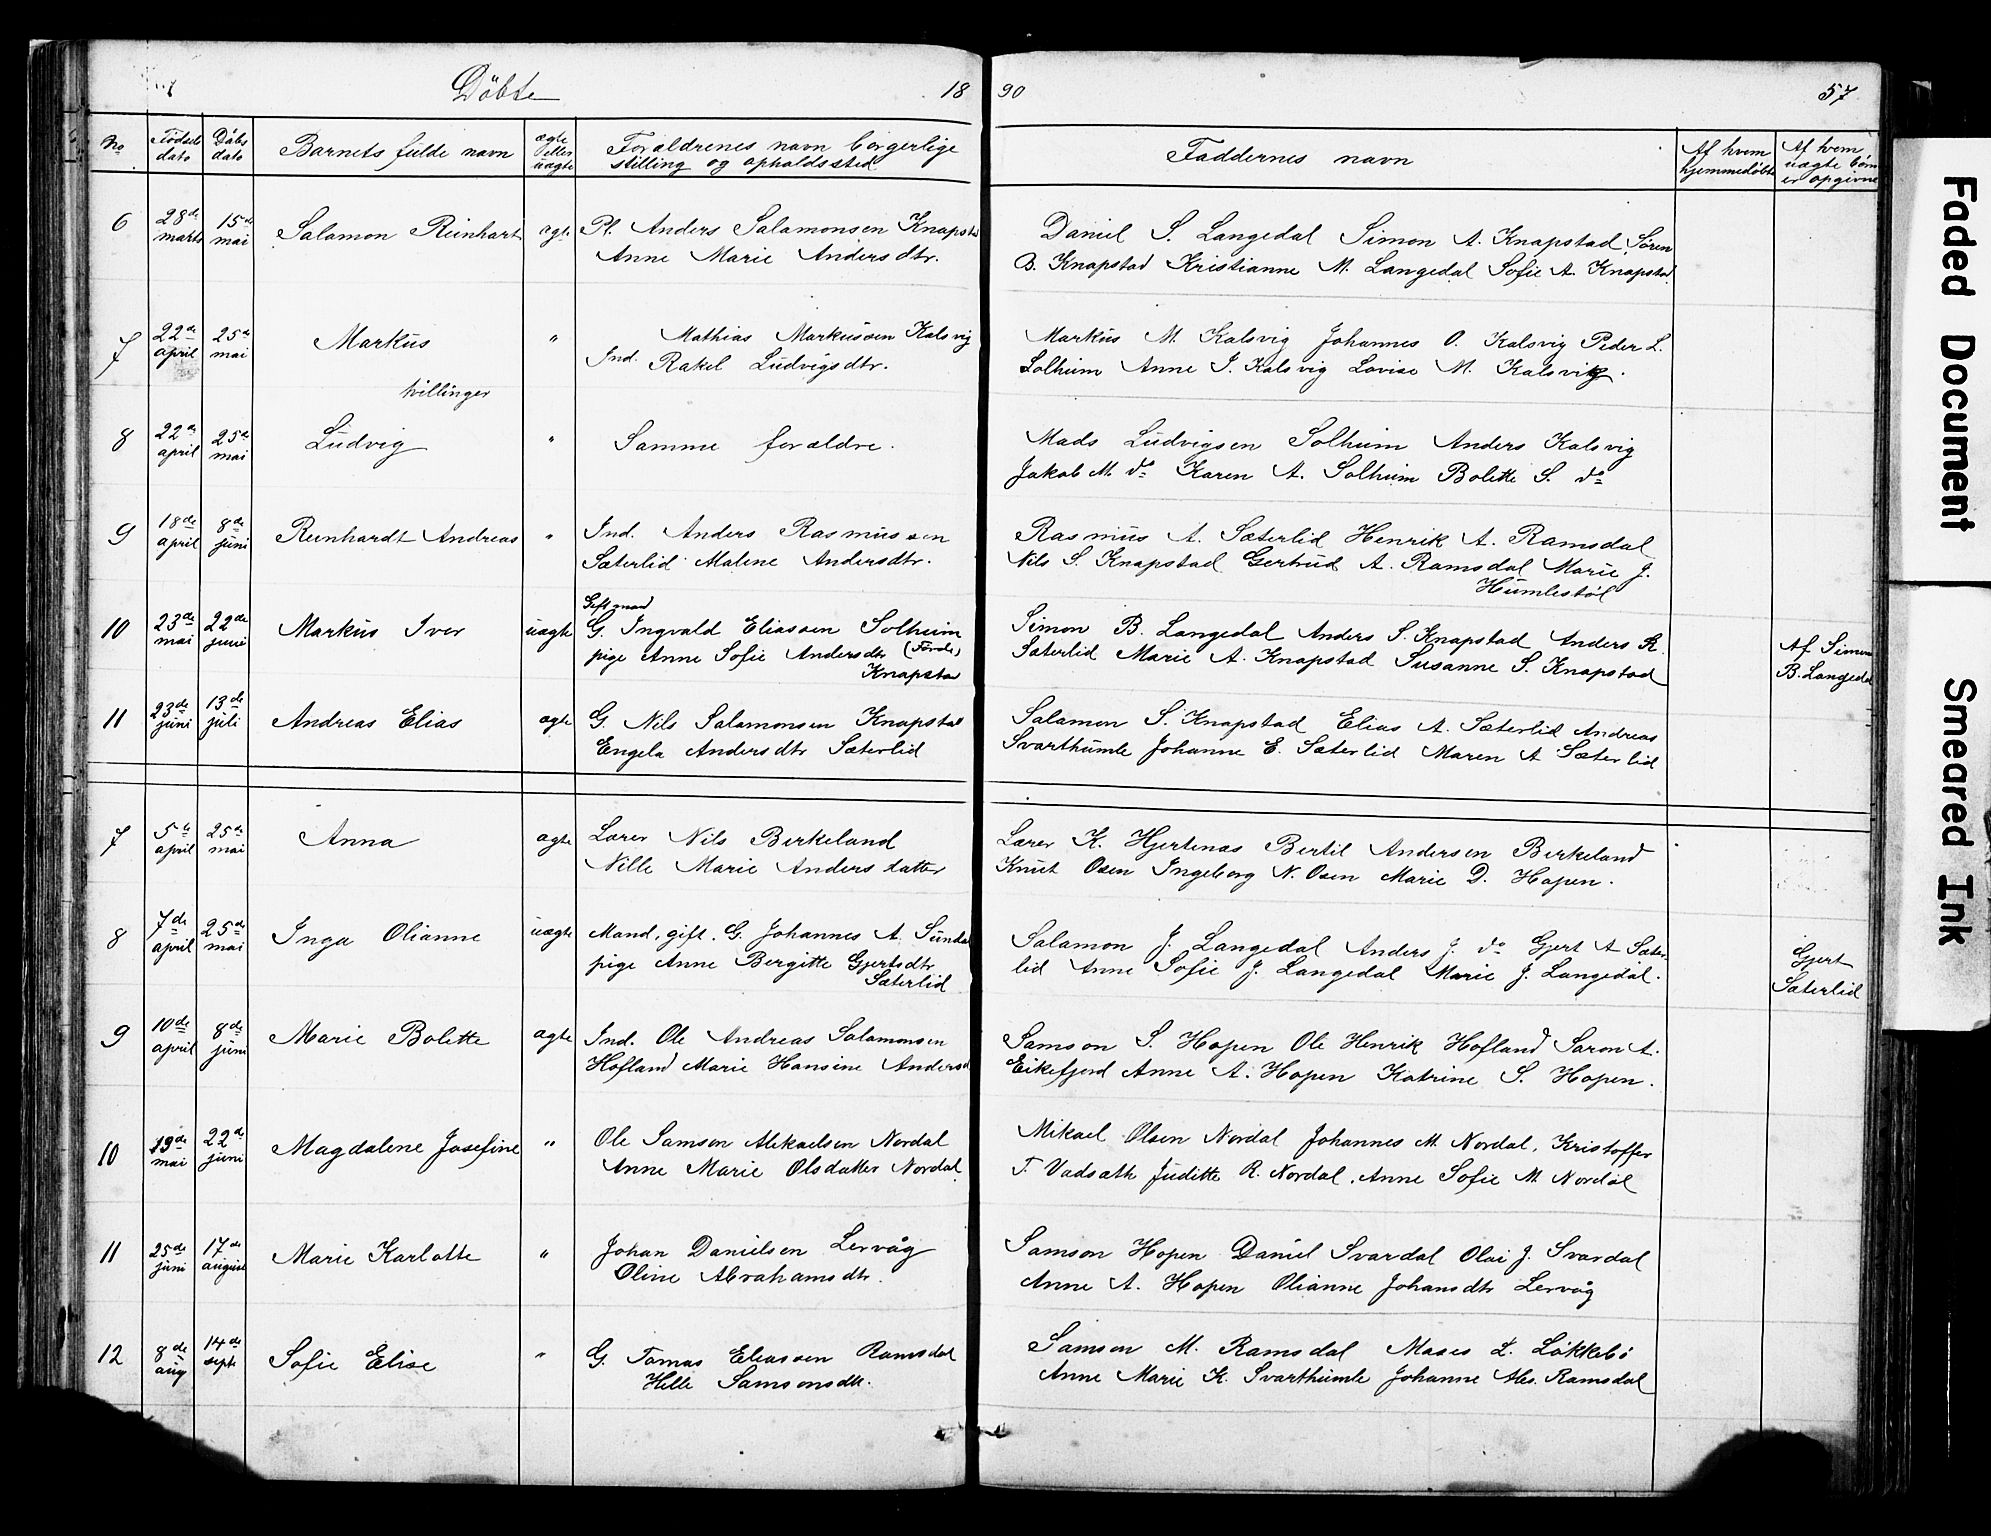 Döbte 18 90 57
No Födsels dato Döbs dato Barnets fulde navn ægte eller uægte Forældrenes navn borgerlige stilling og opholdssted Faddernes navn Af hvem hjemmedøbt Af hvem uægte børn er opgivne
6 28de marts 15de mai Salamon Reinhart ægte Pl. Anders Salamonsen Knapsta Daniel S. Langedal Simon A. Knapstad Søren
Anne Marie Andersdtr. B. Knapstad Kristianne M. Langedal Sofie A. Knapstad
7 22de april 25de mai Markus " Mathias Markussen Kalsvig Markus M. Kalsvig Johannes O. Kalsvig Peder L.
Ind. Rakel Ludvigsdtr. Solheim Anne J. Kalsvig Lovise M. Kalsvig.
tvillinger
8 22de april 25de mai Ludvig " Samme forældre. Mads Ludvigsen Solheim Anders Kalsvig
Jakob M. do Karen A. Solheim Bolette S. do
9 18de april 8de juni Reinhardt Andreas " Ind. Anders Rasmussen Rasmus A. Sæterlid Henrik A. Ramsdal
Sæterlid Malene Andersdtr. Nils S. Knapstad Gertrud A. Ramsdal Marie J.
Humlestøl
Gift mand
10 23de mai 22de juni Markus Iver uægte G. Ingvald Eliassen Solheim Simon B. Langedal Anders S. Knapstad Anders R. Af Simon
pige Anne Sofie Andersdtr (Førde) Sæterlid Marie A. Knapstad Susanne S. Knapstad B. Langedal
Knapstad
11 23de juni 13de juli Andreas Elias ægte G. Nils Salamonsen Knapstad Salamon S. Knapstad Elias A. Sæterlid Andreas
Engela Andersdtr Sæterlid Svarthumle Johanne E. Sæterlid Maren A Sæterlid
7 5te april 25de mai Anna ægte Lærer Nils Birkeland Lærer K. Hjertenæs Bertil Andersen Birkeland
Nille Marie Anders datter Knut Osen Ingeborg N. Osen Marie D. Hopen.
8 7de april 25de mai Inga Olianne uægte Mand, gift. G. Johannes A. Sunda Salamon J. Langedal Anders J. do Gjert A Sæter Gjert
pige Anne Bergitte Gjertsdtr lid Anne Sofie J. Langedal Marie J. Langedal. Sæterlid
Sæterlid
9 10de april 8de juni Marie Bolette ægte Ind. Ole Andreas Salamonsen Samson S. Hopen Ole Henrik Hofland Saron A.
Hofland Marie Hansine Andersd Eikefjord Anne A. Hopen Katrine S. Hopen.
10 19de mai 22de juni Magdalene Josefine " Ole Samson Mekaelsen Nordal Mikael Olsen Nordal Johannes M. Nordal, Kristoffer
Anne Marie Olsdatter Nordal T. Vadsæth Juditte R. Nordal. Anne Sofie M. Nordal
11 25de juni 17de august Marie Karlotte " Johan Danielsen Lervåg Samson Hopen Daniel Svardal Olai J. Svardal
Oline Abrahamsdtr. Anne A. Hopen Olianne Johansdtr Lervåg
12 8de aug 14de septe Sofie Elise " G. Tomas Eliassen Ramsdal Samson M. Ramsdal Moses L. Løkkebø
Helle Samsonsdtr. Anne Marie K. Svarthumle Johanne Als. Ramsdal
Faded Document
Smeared Ink